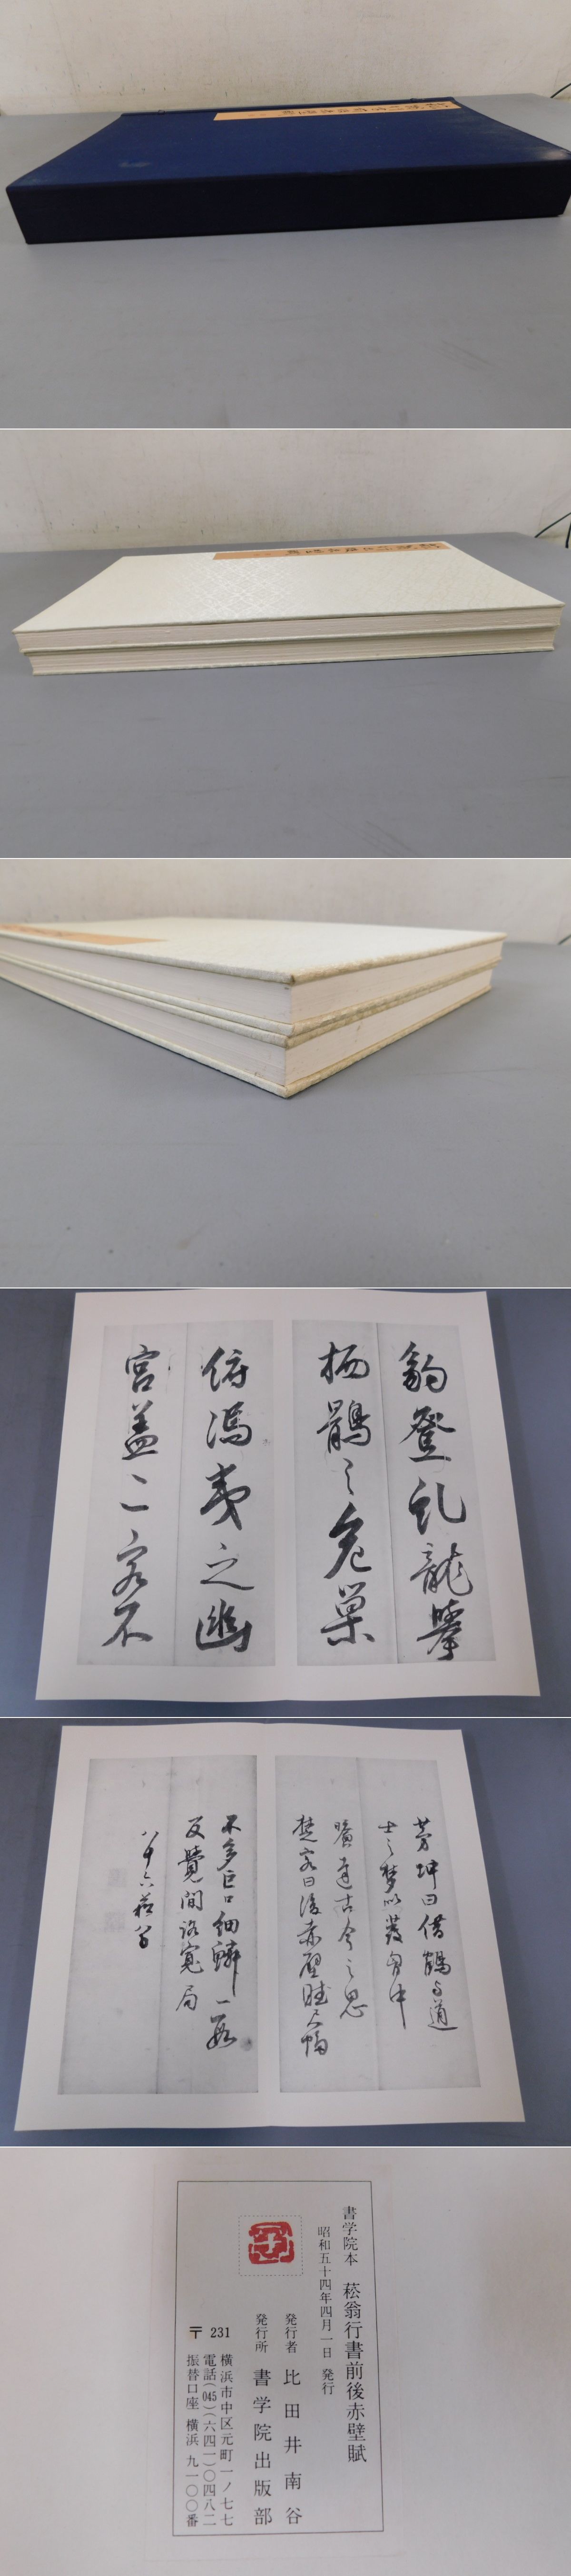 豹登虬龍攀
栖鶻之危巢
俯馮夷之幽
宮蓋二客不
士之夢以發胷中
曠達古今之思
楚客曰後赤壁賦尺幅
不多巨口細鱗一段
反覺間詼寬局
書学院本 菘翁行書前後赤壁賦
昭和五十四年四月一日 発行
発行者 比田井南谷
発行所 書学院出版部
〒231 横浜市中区元町一ノ七七
電話(045)(六四一)〇四八二
振替口座 横浜 九一〇〇番